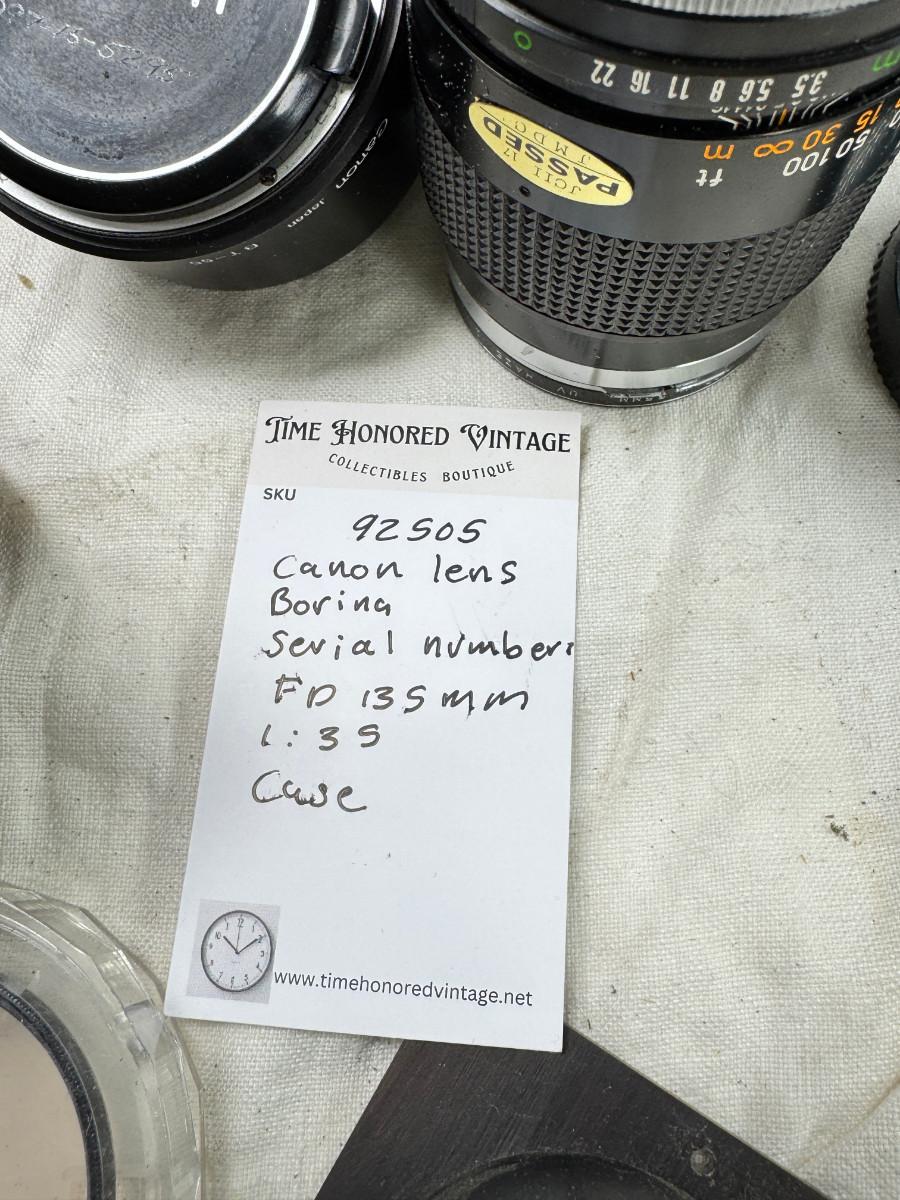 22 16 11 8 5.6 3.5
m ∞ 30 15
ft 100 50
JCII
17
PASSED
JMDC
Canon Japan
TIME HONORED VINTAGE
COLLECTIBLES BOUTIQUE
SKU
92505
Canon lens
Boring
Serial number:
FD 135mm
1:35
Case
www.timehonoredvintage.net